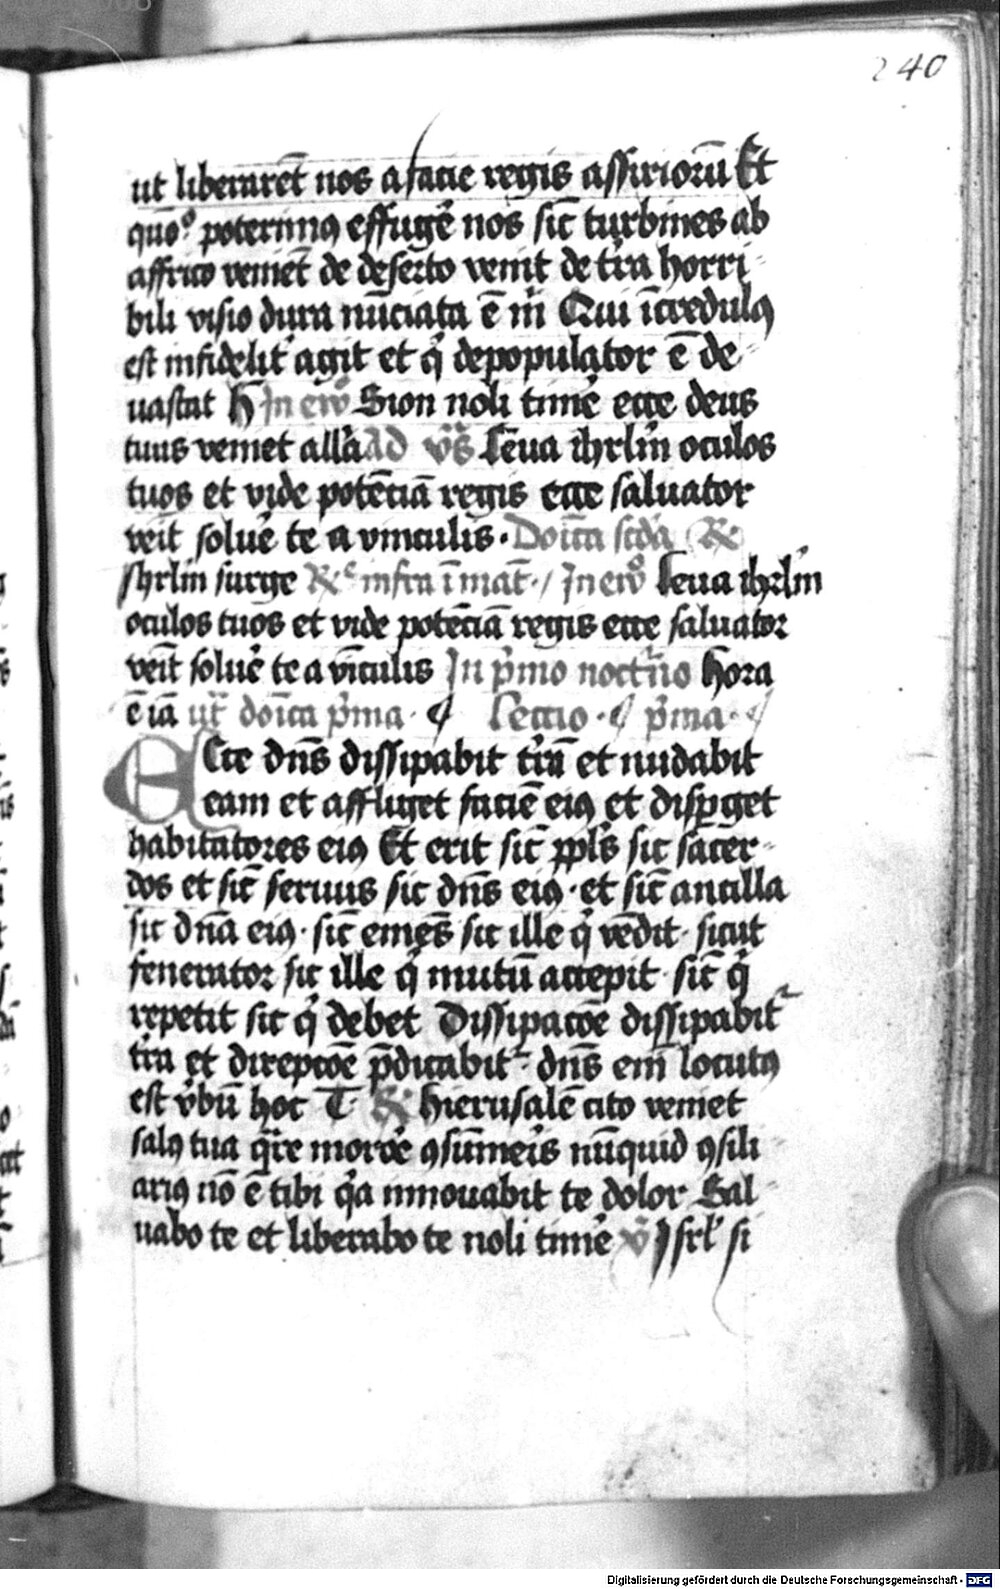 240
ut liberarēt nos a facie regis assiriorū Et
quōo poterimꝰ effugẽ nos sic̄ turbines ab
affrico veniēt de deserto venit de tr̃a horri
bili visio dura nūciata ē m̃ Qui īcredulꝰ
est infidelit̃ agit et q̃ depopulator ē de
uastat H̄ In ew̃ Sion noli timẽ ecce deus
tuus veniet all̃a AD v̄s Leua ihrlm̃ oculos
tuos et vide potēciā regis ecce saluator
veīt soluẽ te a vinculis. Doīca sc̄da R̃
ihrlm̃ surge R̃ infra ī mat̄ / In ew̃ Leua ihrlm̃
oculos tuos et vide potēciā regis ecce saluator
veīt soluẽ te a vīculis In p̃mo noct̃no Hora
ē iā ut̃ doīca p̃ma. Lectio. p̃ma.
ECce dn̄s dissipabit tr̃ā et nudabit
eam et affliget faciē eiꝰ et disꝑget
habitatores eiꝰ Et erit sic̄ ppl̃s sic sacer
dos et sic̄ seruus sic dn̄s eiꝰ. et sic̄ ancilla
sic dn̄a eiꝰ. sic̄ emēs sic ille q̃ vēdit. sicut
fenerator sic ille q̃ mutuū accepit. sic̄ q̃
repetit sic q̃ debet Dissipacōe dissipabit̃
tr̃a et direpcōe p̄dicabit̃. dn̄s em̄ locutꝰ
est v̄bū hoc T. R̃ Hierusalē cito veniet
salꝰ tua q̃re merorẽ ꝯsūmeris nūquid ꝯsili
ariꝰ nō ē tibi q̃a innouabit te dolor Sal
uabo te et liberabo te noli timẽ v̄ Isrl̃ si
Digitalisierung gefördert durch die Deutsche Forschungsgemeinschaft - DFG